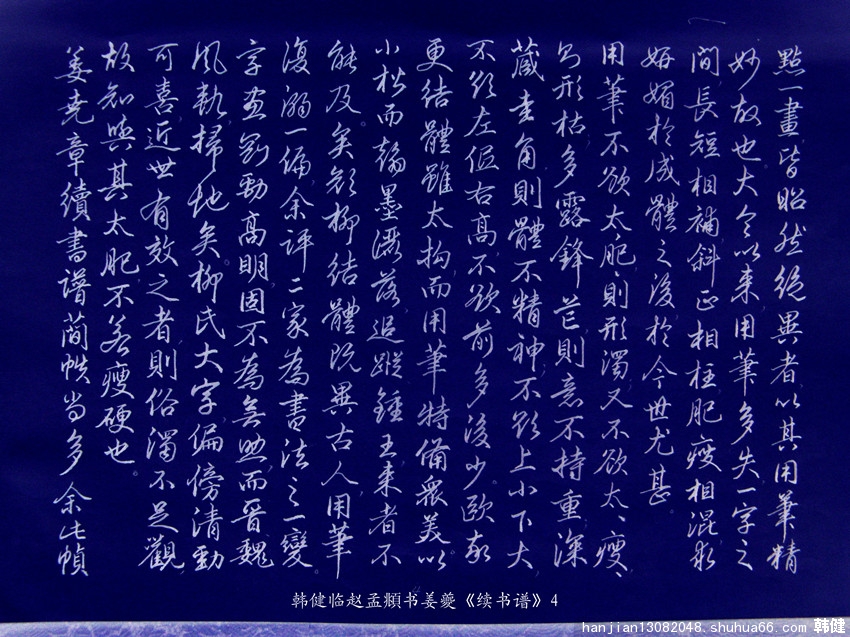 點一畫皆昭然絕異者以其用筆精
妙故也大令以來用筆多失一字之
間長短相補斜正相柱肥瘦相混求
妍媚於成體之後於今世尤甚
用筆不欲太肥則形濁又不欲太瘦瘦
則形枯多露鋒芒則意不持重深
藏圭角則體不精神不欲上小下大
不欲左低右高不欲前多後少歐率
更結體雖太拘而用筆特備眾美以
小楷而翰墨灑落追蹤鍾王來者不
能及矣顏柳結體既異古人用筆
復溺一偏余評二家為書法之一變
字畫剛勁高明固不為無助而晉魏
風軌掃地矣柳氏大字偏傍清勁
可喜近世有效之者則俗濁不足觀
故知與其太肥不若瘦硬也
姜堯章續書譜蘭帙尚多余此幀
韩健临赵孟頫书姜夔《续书谱》4
hanjian13082048.shuhua66.com 韩健